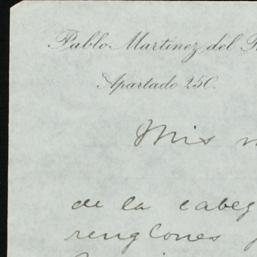 Pablo Martinez del
Apartado 250.
Mis
de la cabez
renglones